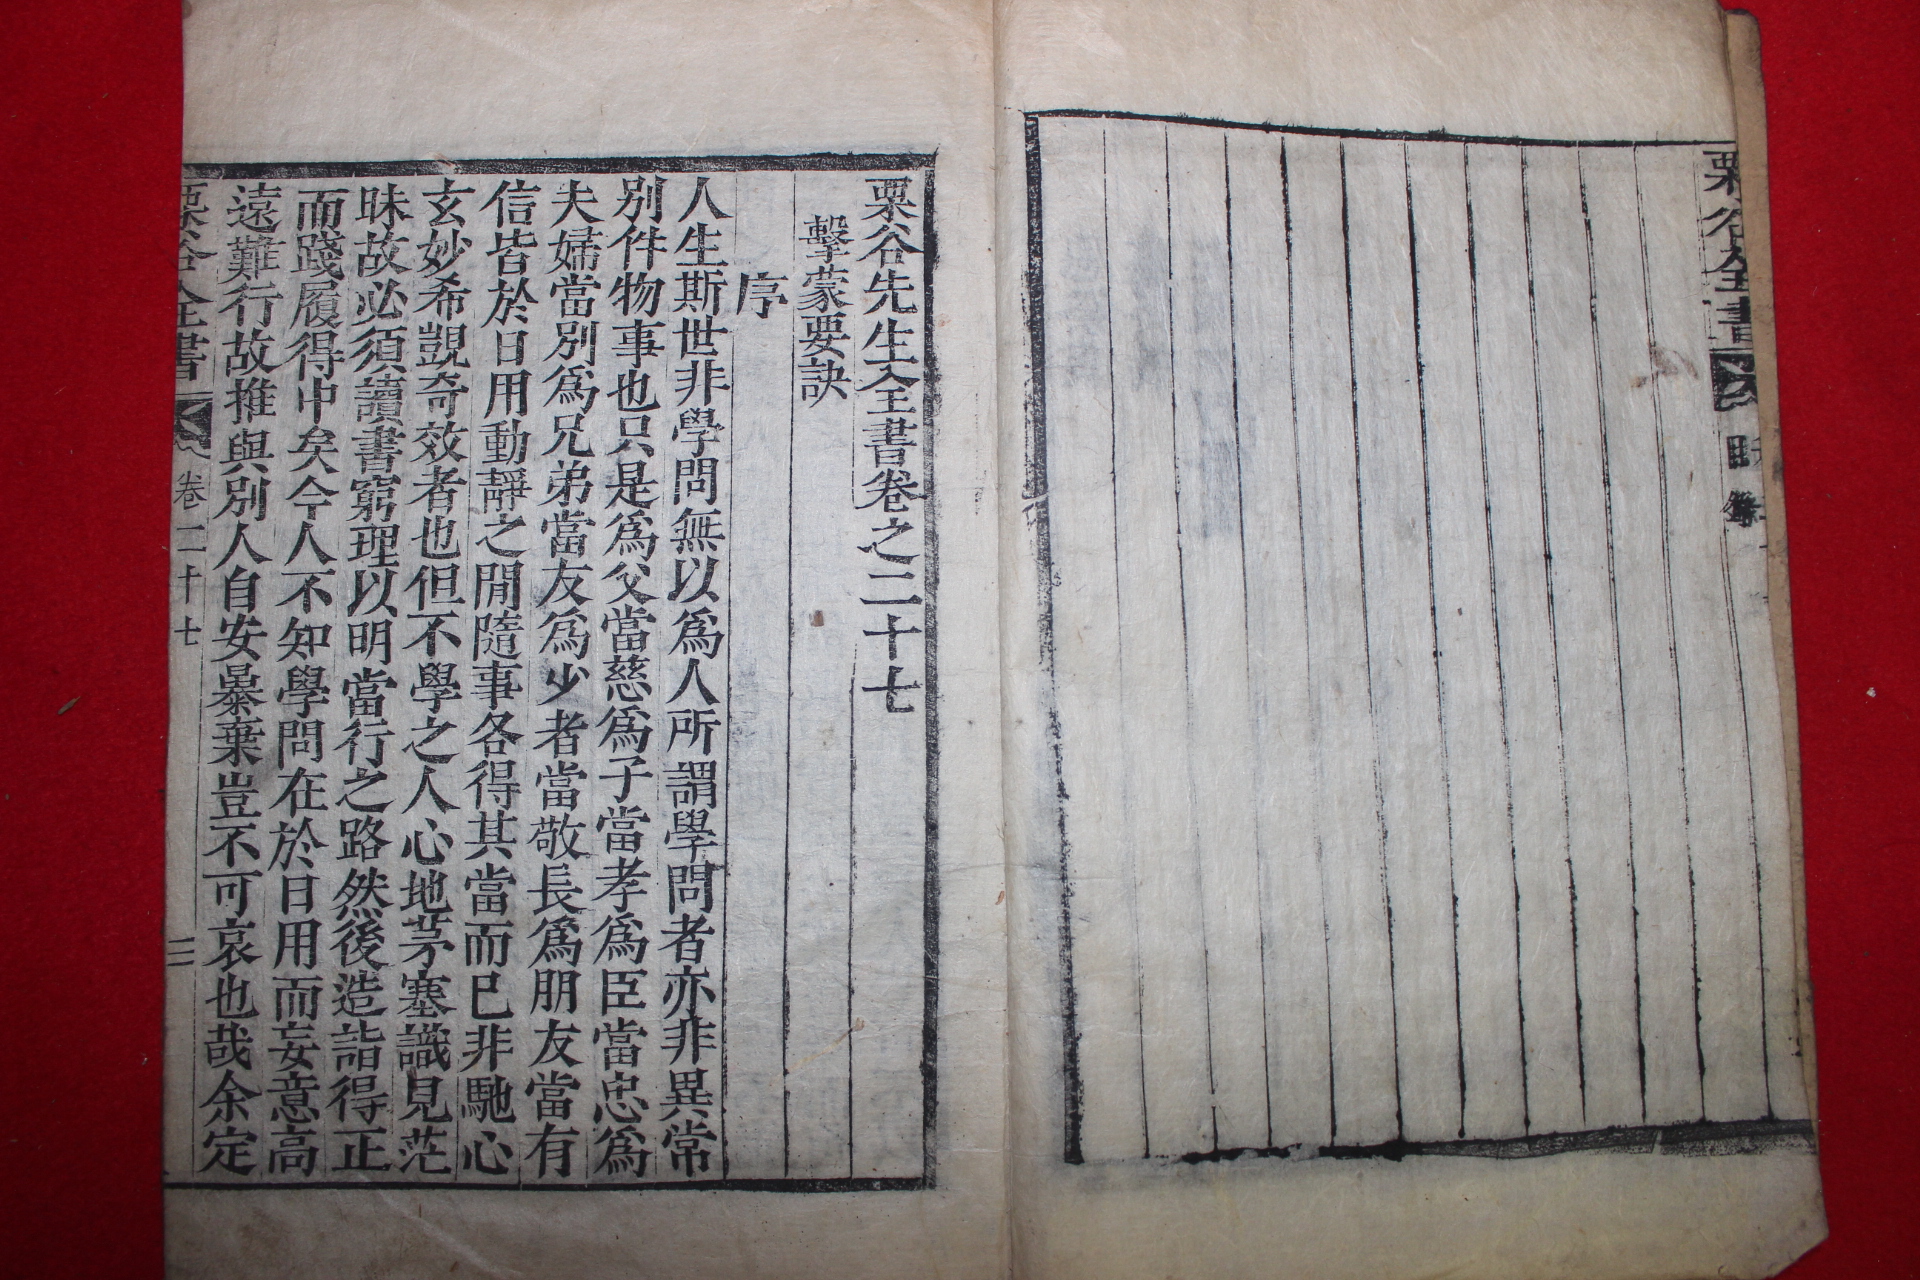 栗谷全書
栗谷先生全書卷之二十七
擊蒙要訣
序
人生斯世非學問無以爲人所謂學問者亦非異常
別件物事也只是爲父當慈爲子當孝爲臣當忠爲
夫婦當別爲兄弟當友爲少者當敬長爲朋友當有
信皆於日用動靜之閒隨事各得其當而已非馳心
玄妙希覬奇效者也但不學之人心地茅塞識見茫
昧故必須讀書窮理以明當行之路然後造詣得正
而踐履得中矣今人不知學問在於日用而妄意高
遠難行故推與別人自安暴棄豈不可哀也哉余定
栗谷全書 卷二十七